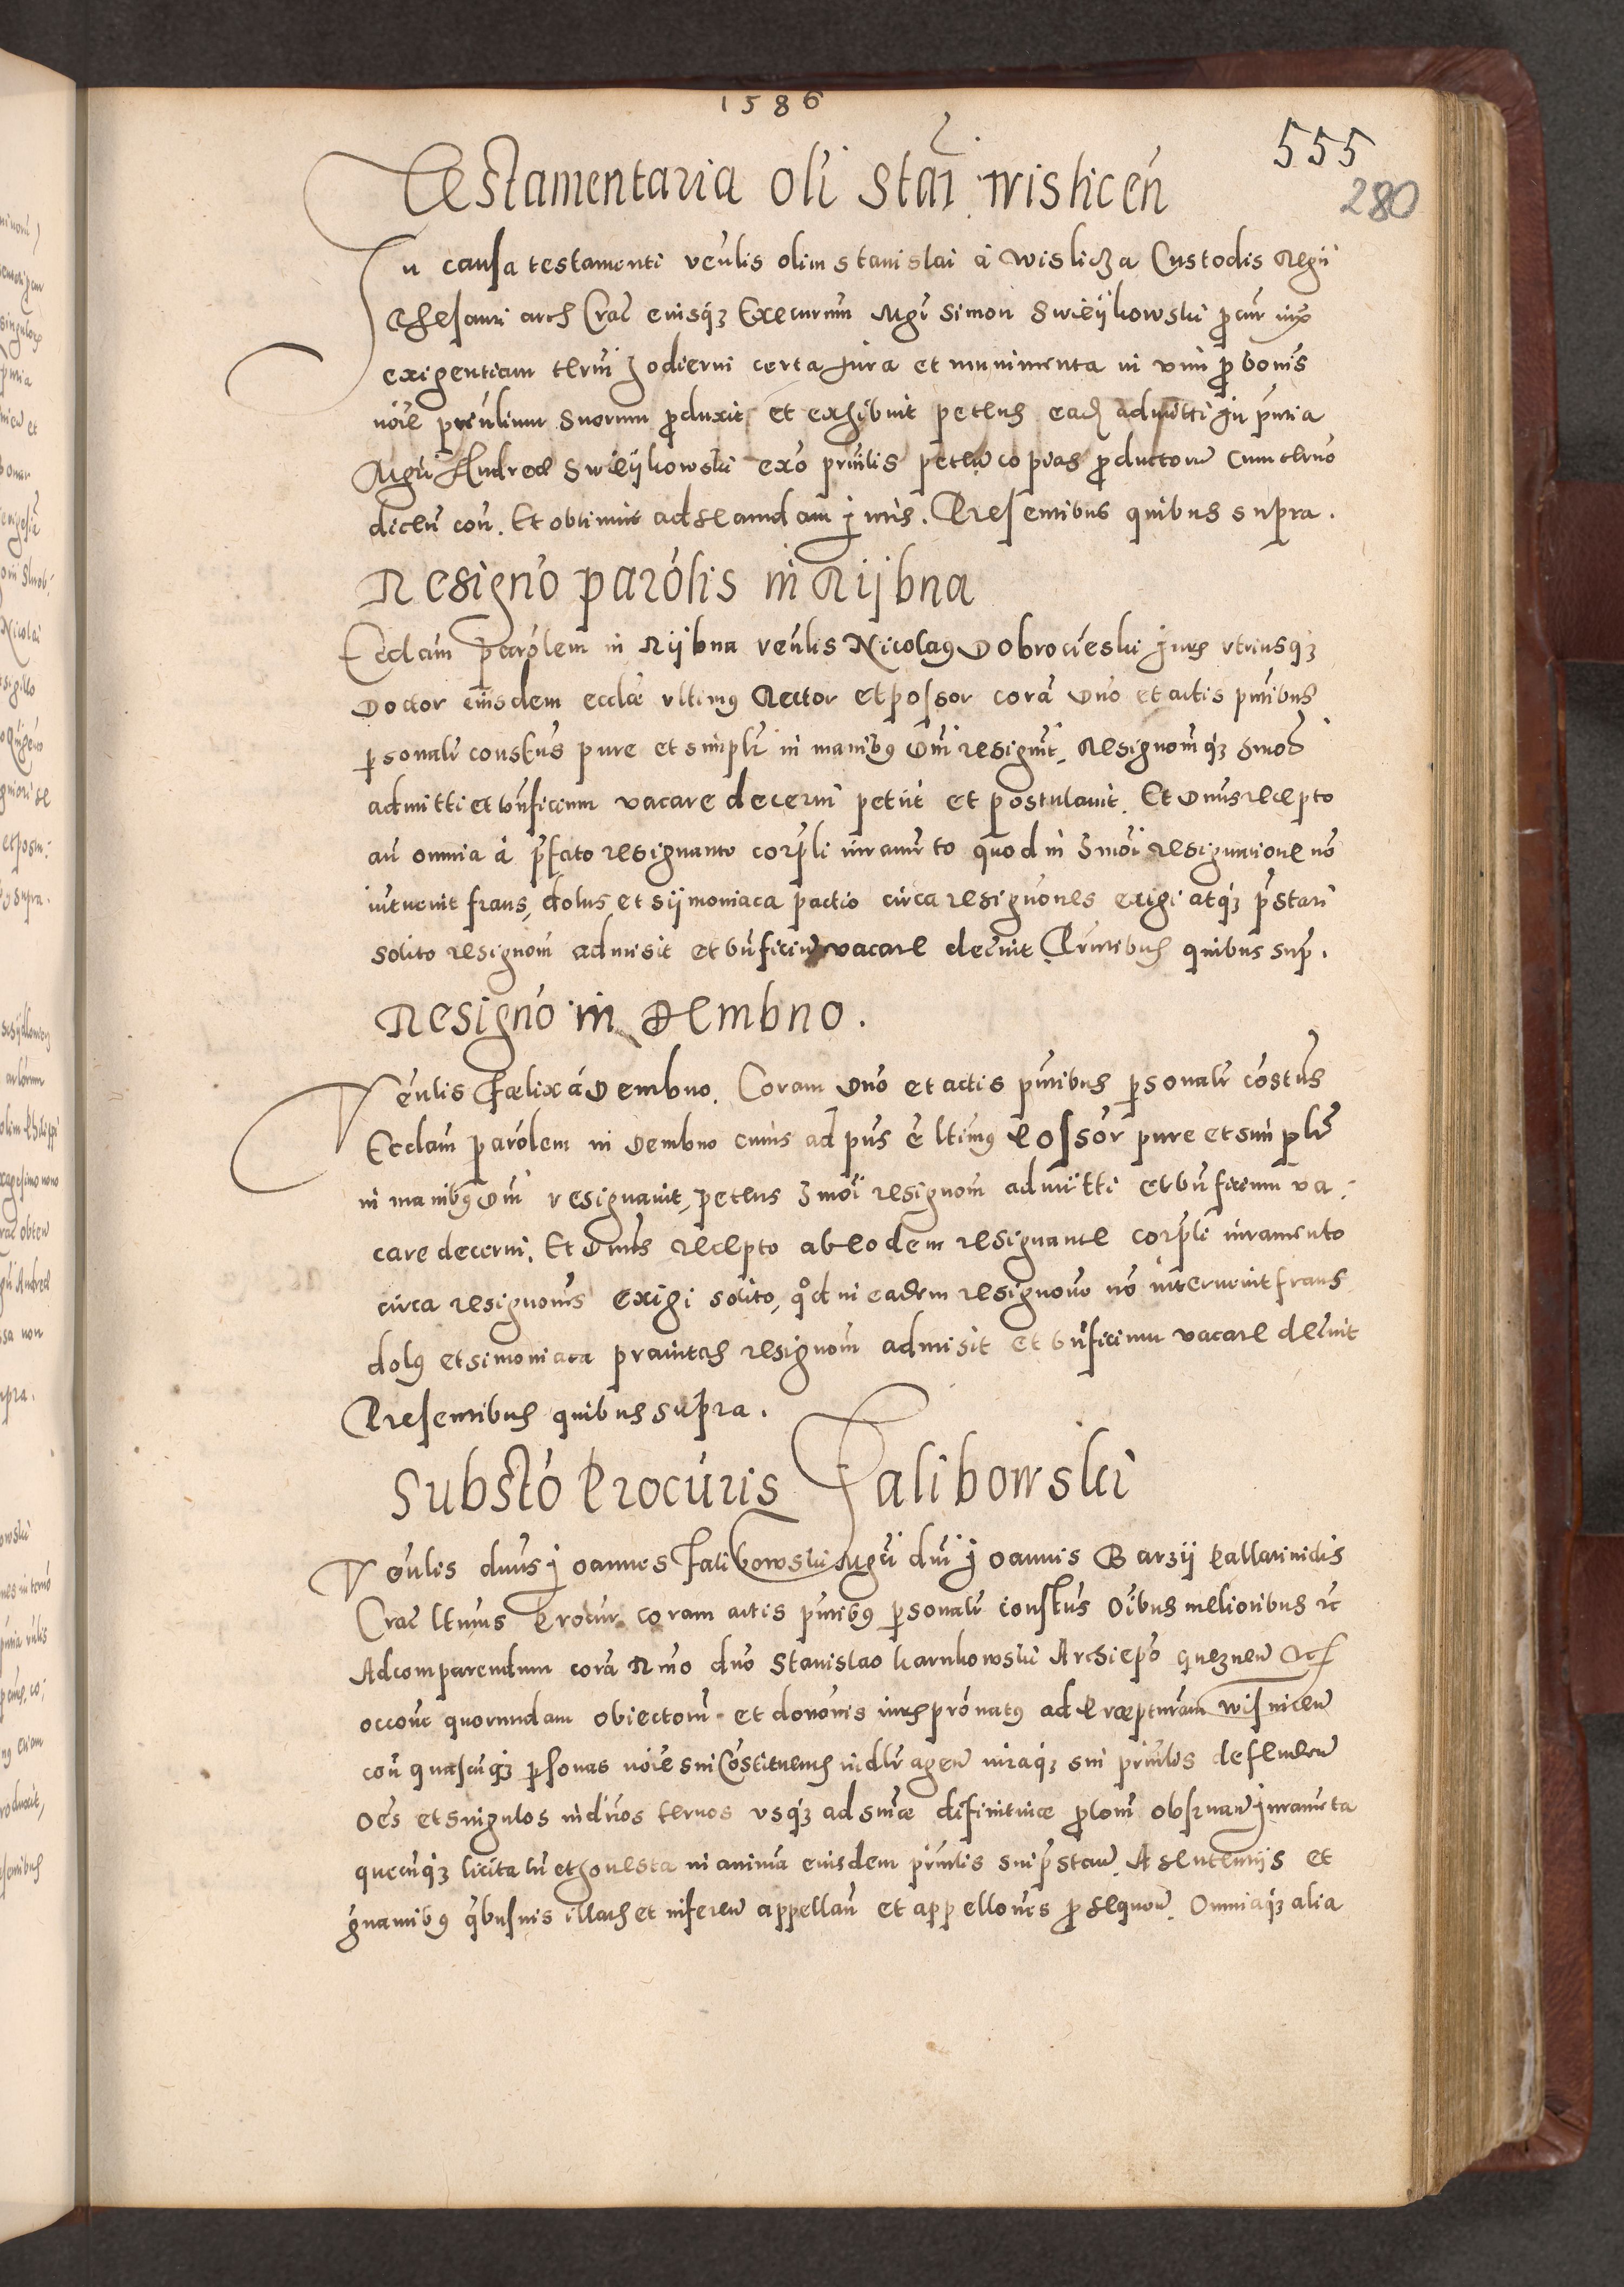 1586
555
280
Testamentaria oli Stai Wislicen
In causa testamenti venlis olim Stanislai a Wislicza Custodis Regii
Thesauri arch Crac eiusq Execurum Mgr Simon Swieijkowski procur iux
exigentiam termi hodierni certa Jura et munimenta in vim pro bonis
noie prinlium suorum produxit et exhibuit petens eadem admitti In pntia
Mgri Andreæ Swieijkowski exo prinlis peten copias productorum cum termo
dicen con. Et obtinuit ad secundam Juris. Presentibus quibus supra.
Resigno parolis in Rijbna
Ecclam parolem in Rijbna venlis Nicolaus Dobrocieski Juris vtriusq
Doctor eiusdem ecclæ vltimus Rector et possor cora Dno et actis pntibus
personalr constus pure et simplr in manibus Dni resignit, Resignomq hmoi
admitti et bnficium vacare decerni petiit et postulauit. Et Dnus recepto
an omnia a pfato resignante corpli iuramento quod in hmoi resignatione no
interuenit fraus, dolus et sijmoniaca pactio circa resignones exigi atq pstari
solito resignom admisit et bnficium vacare decreuit Pntibus quibus sup.
Resigno in Dembno.
Venlis Fœlix a Dembno. Coram Dno et actis pntibus personalr costus
Ecclam parolem in Dembno cuius ad pns e ltimus Possor pure et simplr
in manibus Dni resignauit, petens hmoi resignom admitti et bnficium va:
care decerni. Et Dnus recepto ab eodem resignante corpli iuramento
circa resignones exigi solito, qod in eadem resignone no interuenit fraus
dolus et simoniaca prauitas resignom admisit et bnficium vacare decreuit
Presentibus quibus supra.
Substo Procuris Falibowski
Venlis dnus Joannes Falibowski Mgci dni Joannis Barzij Pallatinidis
Crac ltimus Procur coram actis pntibus personalr constus Oibus melioribus rc
Ad comparendum cora Rmo dno Stanislao Karnkowski Archiepo Gneznen etc
occone quorundam obiectorum et dononis iuris pronatus ad Præpturam Wisnicen
con quascunq personas noie sui Constituentis iudlr agen iuraq sui prinlis defenden
Oes et singulos iudrios termos vsq ad snice difinitiuæ prolom obseruan Juramta
quecunq licita tn et honesta in anima eiusdem prinlis sui pstan. A sententijs et
gnaminibus qbusuis illatis et inferen appellan et appellones prosequen. Omniaq alia